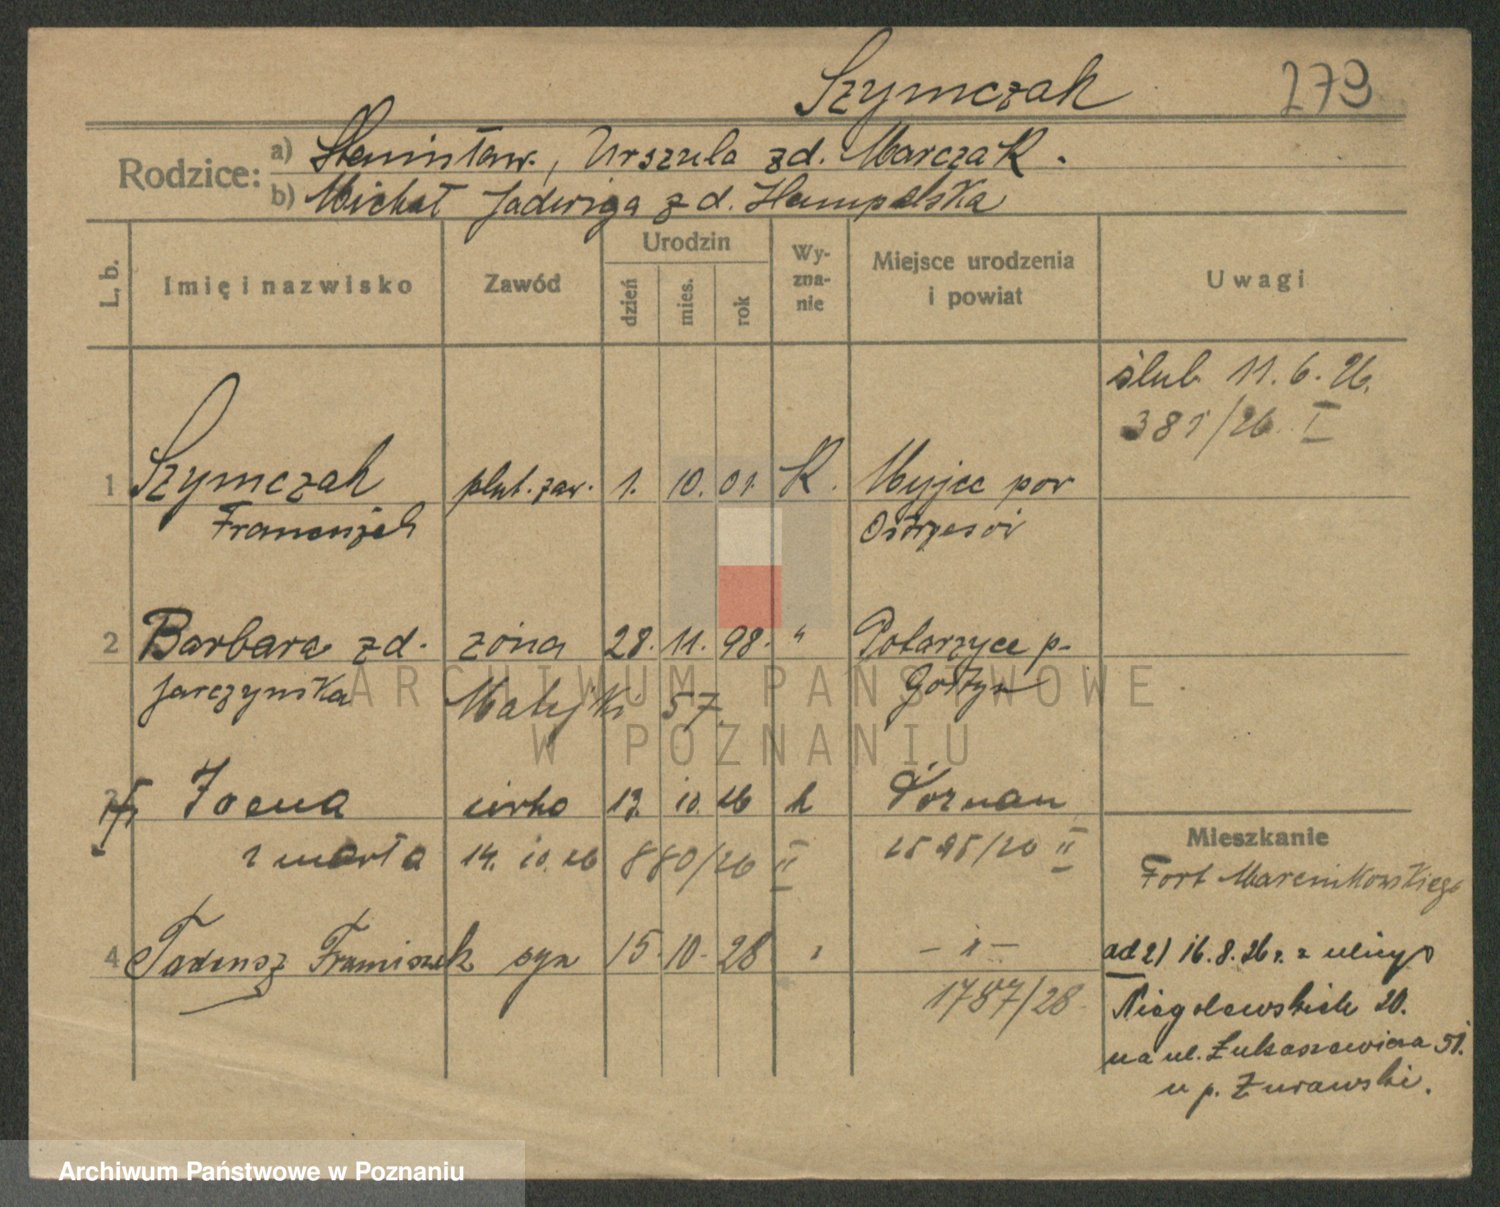 Szymczak 279
Rodzice: a) Stanisław, Urszula zd. Marczak.
b) Michał Jadwiga zd. Hampelska
L. b. Imię i nazwisko Zawód Urodzin dzień mies. rok Wy-zna-nie Miejsce urodzenia i powiat Uwagi
ślub 11. 6. 26.
381/26 I
1 Szymczak plut. zaw. 1. 10. 01. K. Myjce pow
Franciszek Ostrzeszów
2 Barbara zd. żona 28. 11. 98. " Potarzyce p.
Jarczyńska Matejki 57. Gostyn
3 Joana córka 13. 10. 26 k Poznań
zmarła 14. 10. 26 880/26 II 1595/26 II
Mieszkanie
Fort Marcinkowskiego
4 Tadeusz Franciszek syn 15. 10. 28 " – " –
1787/28
ad 2) 16. 8. 26 r. z ulicy
Niegolewskich 20.
na ul. Łukaszewicza 51.
u p. Żurawski.
ARCHIWUM PAŃSTWOWE
W POZNANIU
Archiwum Państwowe w Poznaniu